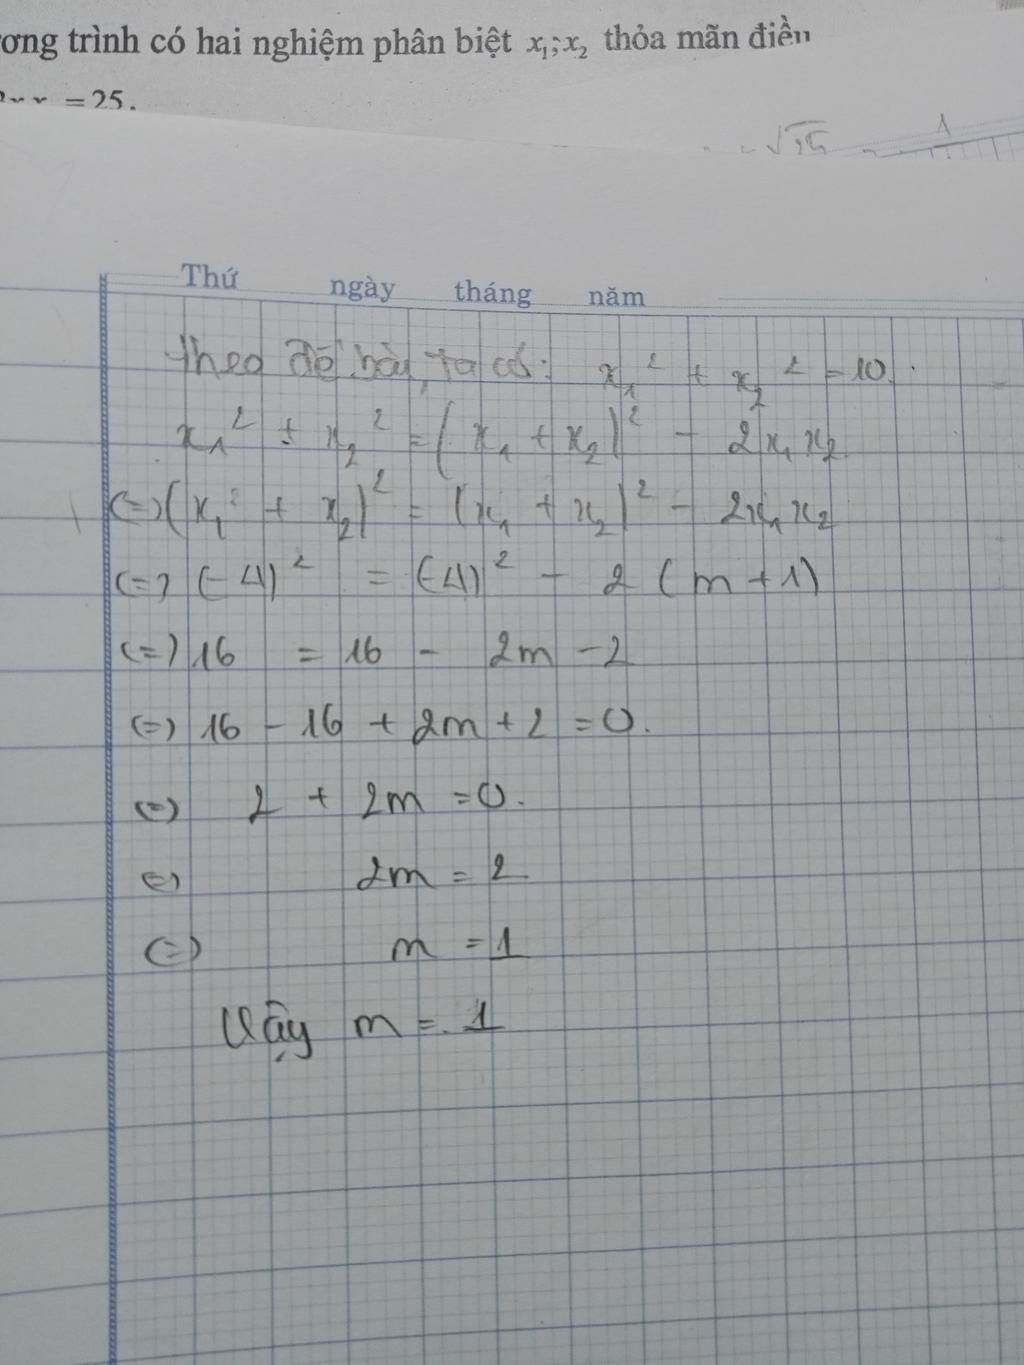 ơng trình có hai nghiệm phân biệt x₁;x₂ thỏa mãn điền
= 25.
√25 1
Thứ ngày tháng năm
Theo đề bài, ta có: x₁² + x₂² = 10.
x₁² + x₂² = (x₁ + x₂)² - 2x₁x₂
(=) (x₁² + x₂)² = (x₁ + x₂)² - 2x₁x₂
(=) (-4)² = (-4)² - 2(m+1)
(=) 16 = 16 - 2m - 2
(=) 16 - 16 + 2m + 2 = 0.
(=) 2 + 2m = 0.
(=) 2m = 2
(=) m = 1
Vậy m = 1